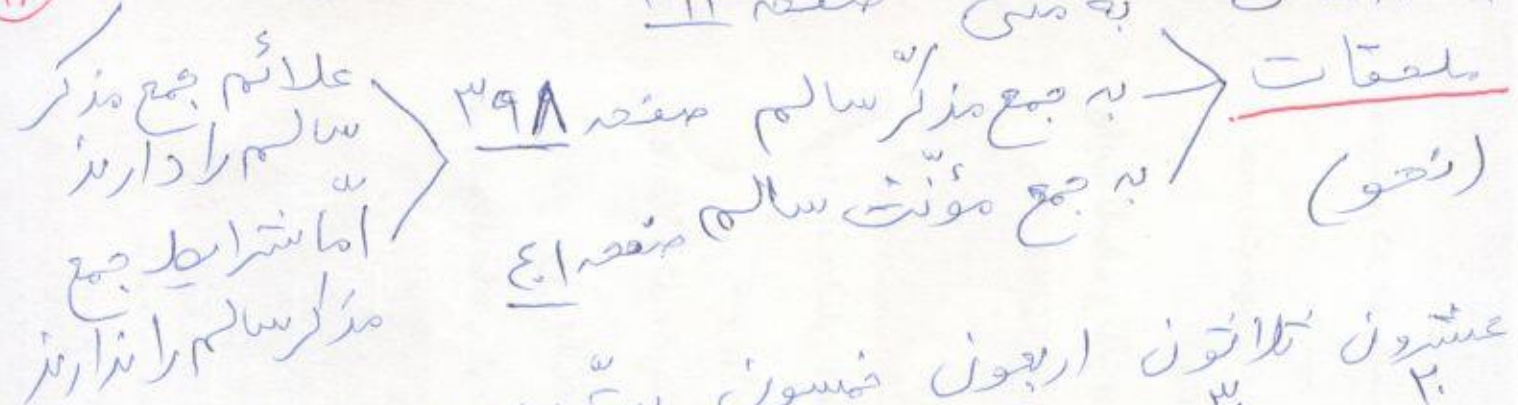 به مثنی صفحه
ملحقات
(نحو)
به جمع مذکّر سالم صفحه ۳۹۸
به جمع مؤنّث سالم صفحه ٤٠١
علائم جمع مذکر
سالم را دارند
امّا شرایط جمع
مذکر سالم را ندارند
عشرون ثلاثون اربعون خمسون ستّون
۲۰ ۳۰